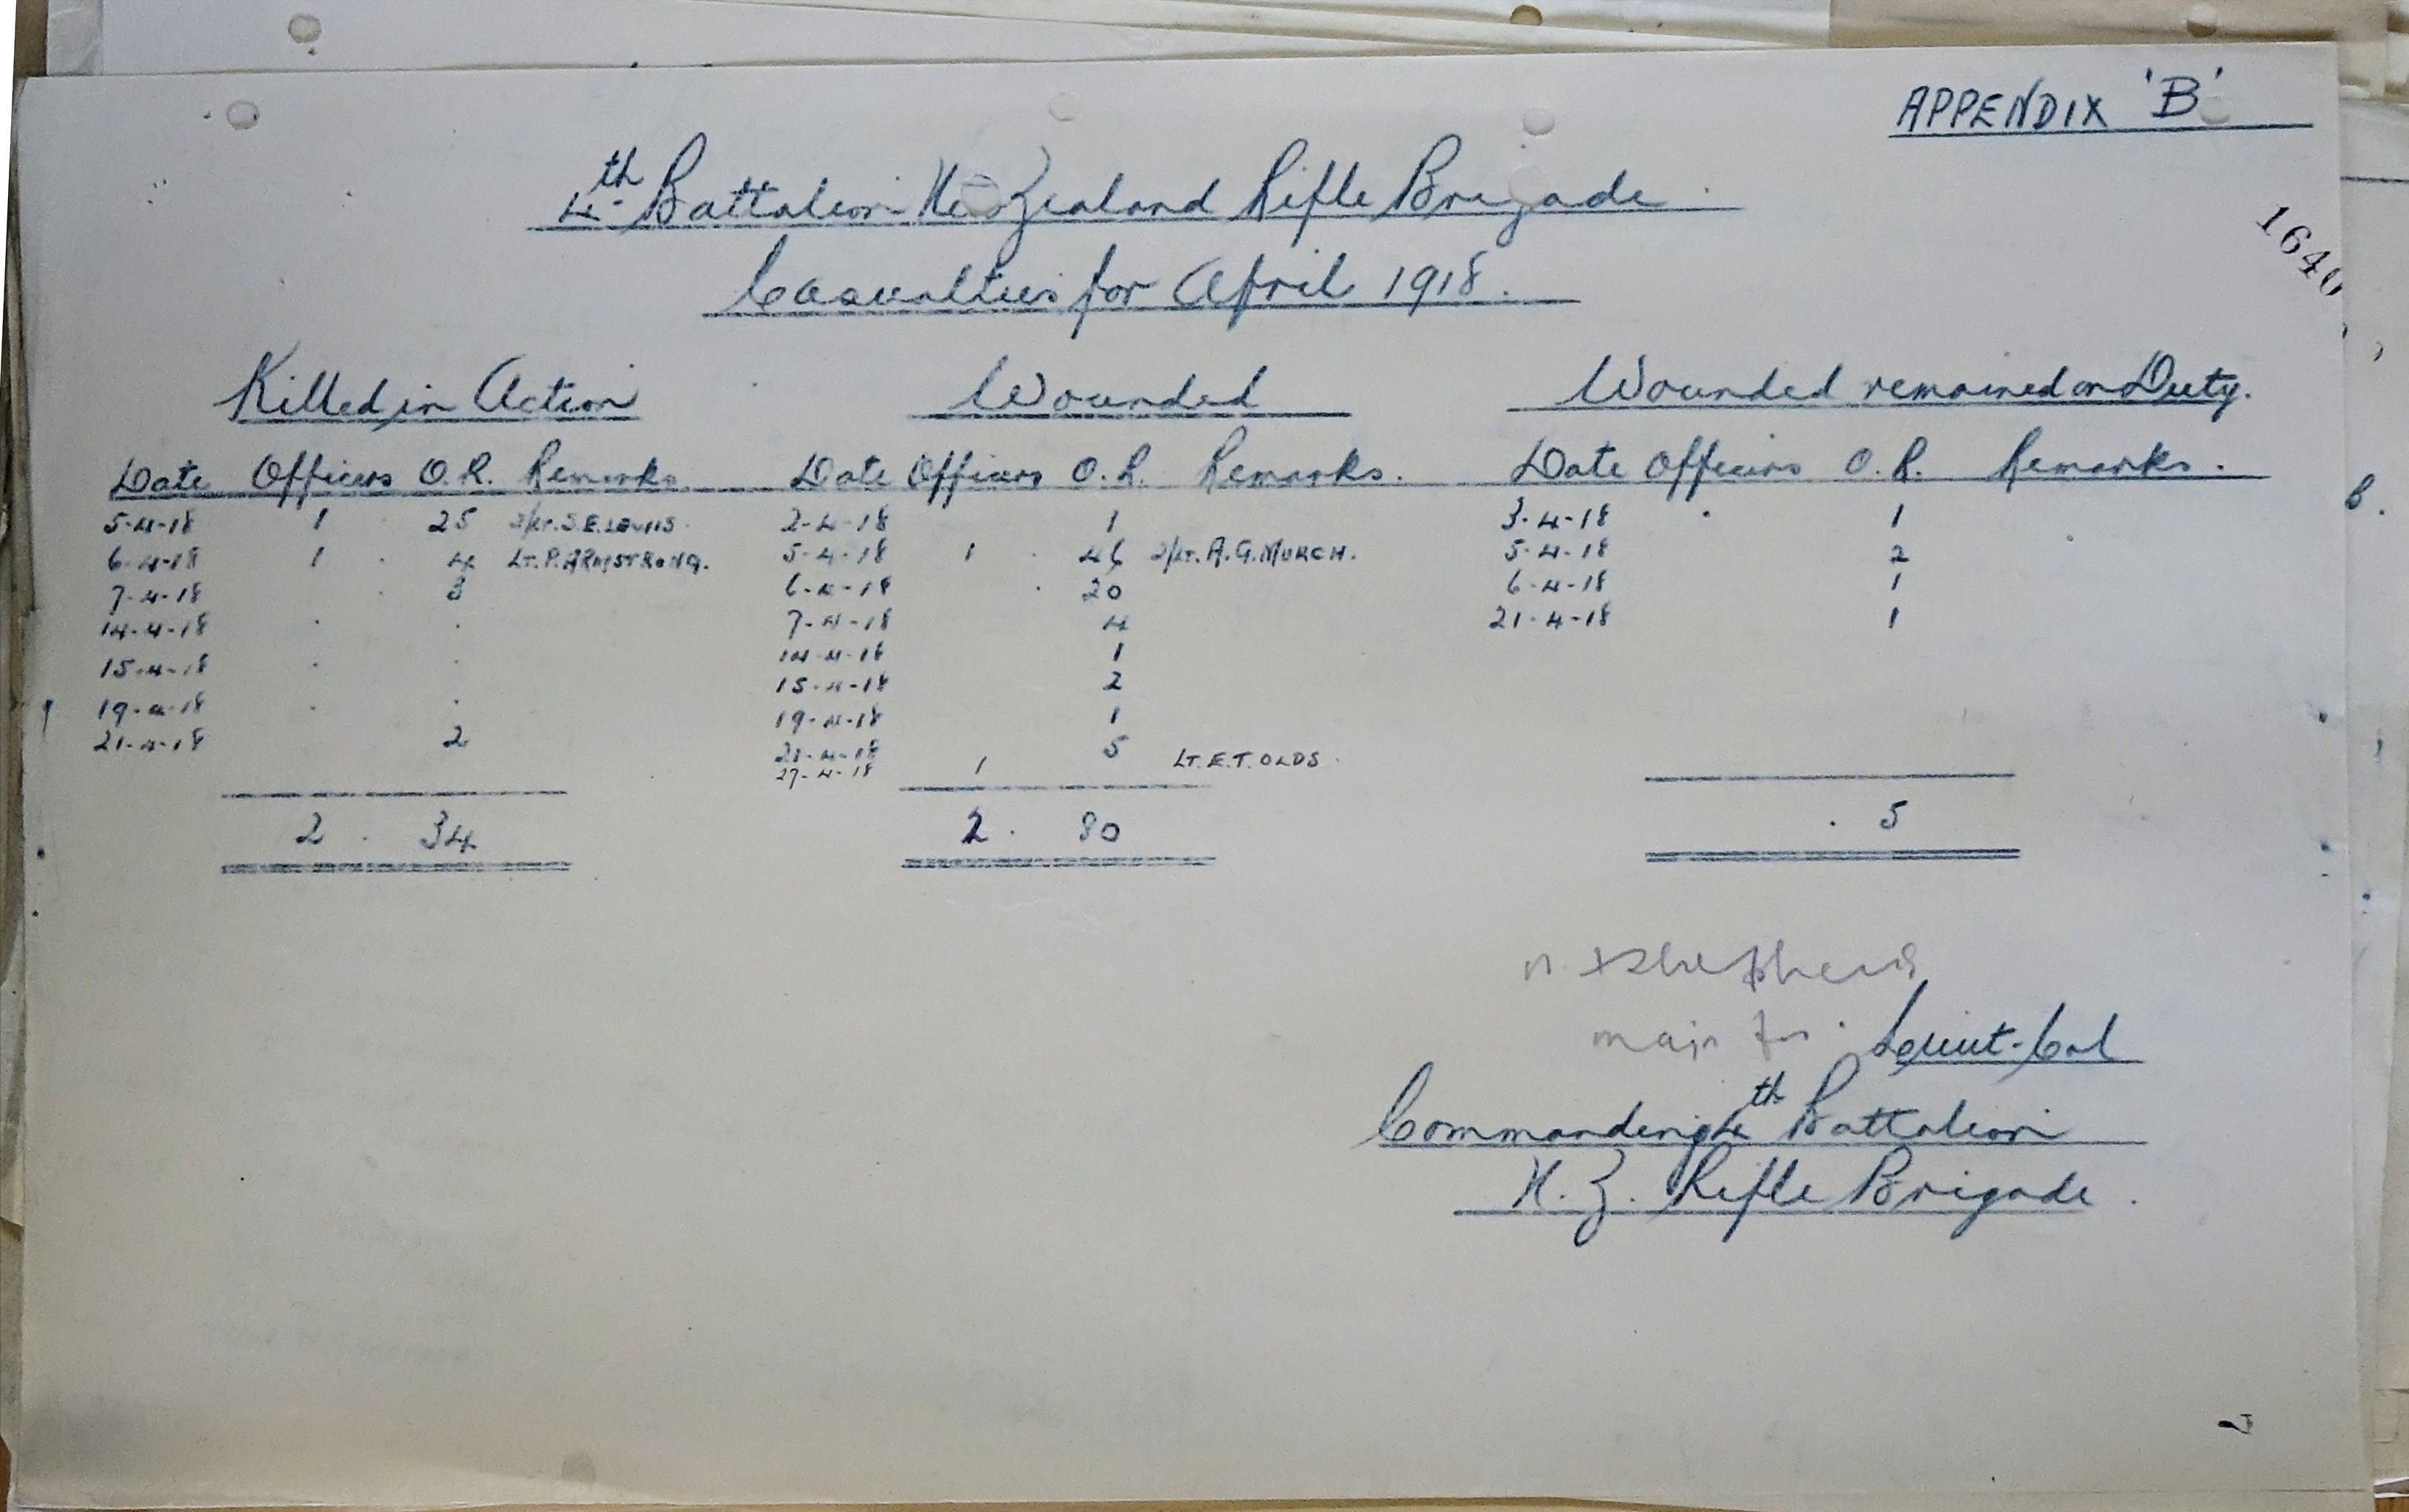 APPENDIX 'B'
4th Battalion New Zealand Rifle Brigade.
1640
Casualties for April 1918.
Killed in Action Wounded Wounded remained on Duty.
Date Officers O.R. Remarks. Date Officers O.R. Remarks. Date Officers O.R. Remarks.
5-4-18 1 25 2/Lt. S.E. LEWIS. 2-4-18 1 3-4-18 1
6-4-18 1 4 LT. P. ARMSTRONG. 5-4-18 1 46 2/LT. A.G. MURCH. 5-4-18 2
7-4-18 3 6-4-18 20 6-4-18 1
14-4-18 7-4-18 4 21-4-18 1
15-4-18 14-4-18 1
19-4-18 15-4-18 2
21-4-18 2 19-4-18 1
21-4-18 5
27-4-18 1 LT. E.T. OLDS.
2 34 2 80 5
major for Lieut-Col
Commanding 4th Battalion
N.Z. Rifle Brigade.